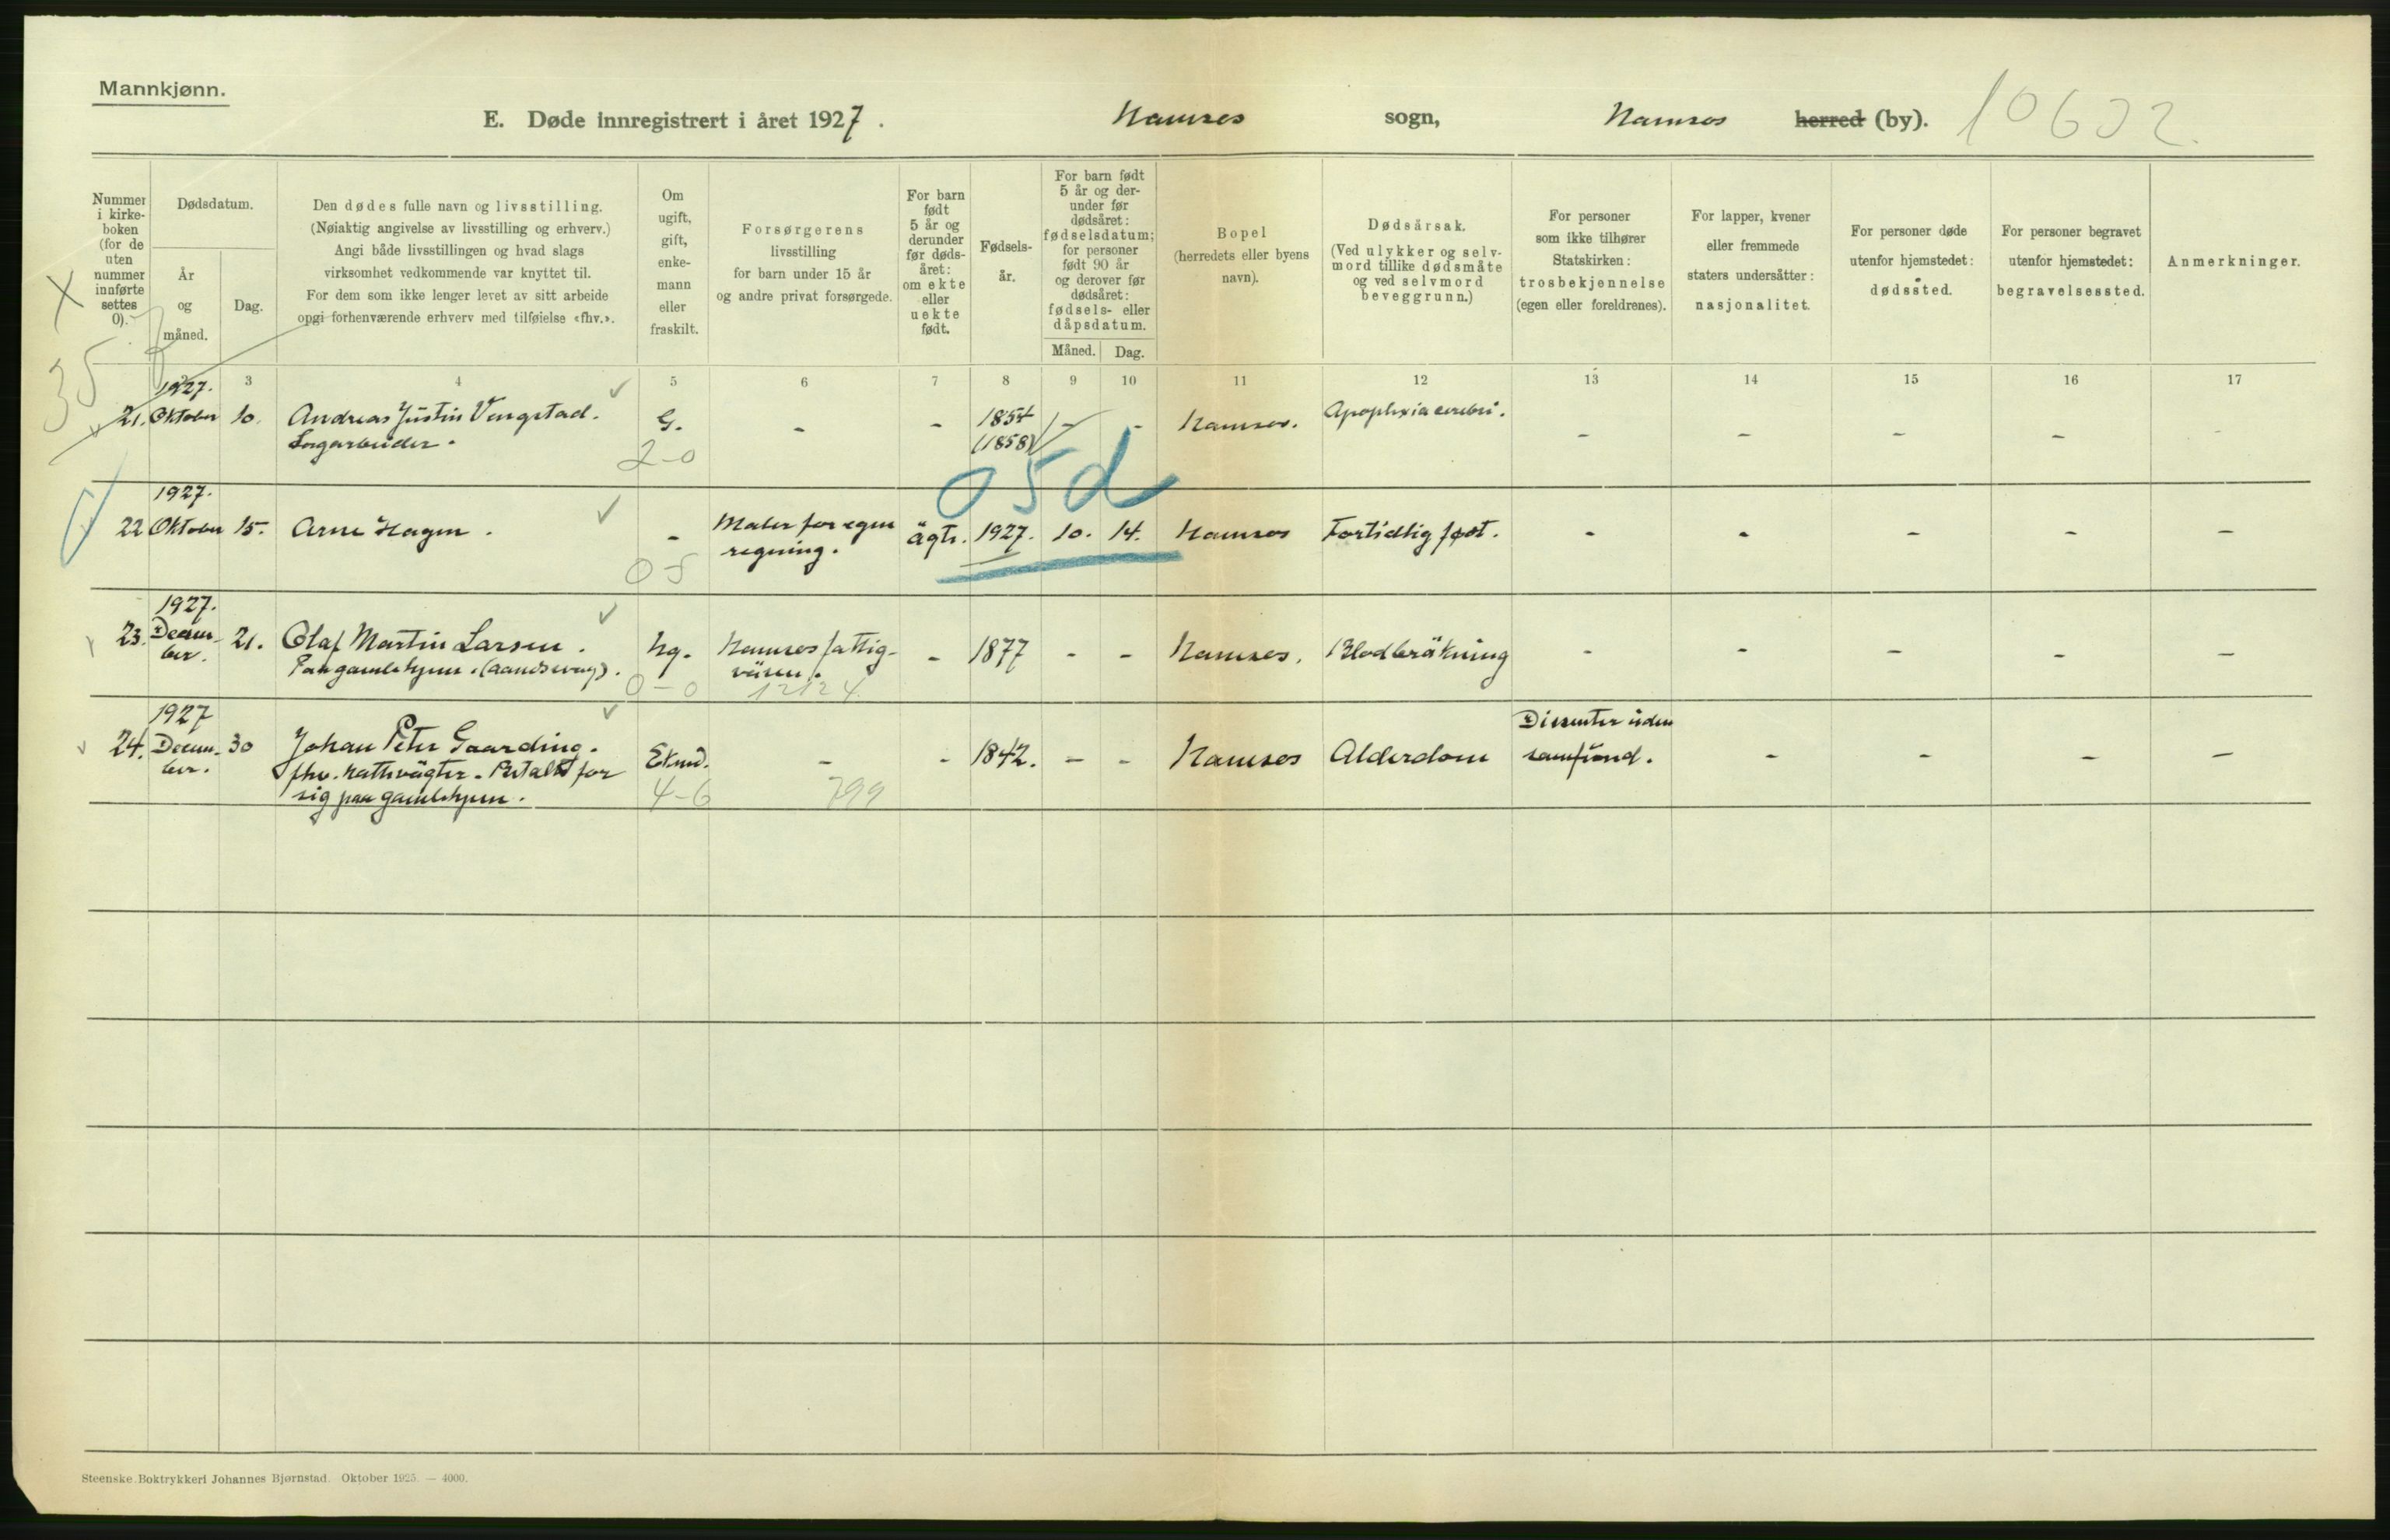 Mannkjønn.
E. Døde innregistrert i året 1927. Namsos sogn, Namsos herred (by). 10602.
Nummer i kirkeboken (for de uten nummer innførte settes 0).
Dødsdatum.
År og måned.
Dag.
Den dødes fulle navn og livsstilling.
(Nøiaktig angivelse av livsstilling og erhverv.)
Angi både livsstillingen og hvad slags
virksomhet vedkommende var knyttet til.
For dem som ikke lenger levet av sitt arbeide
opgi forhenværende erhverv med tilføielse «fhv.».
Om ugift, gift, enkemann eller fraskilt.
Forsørgerens
livsstilling
for barn under 15 år
og andre privat forsørgede.
For barn født 5 år og derunder før dødsåret: om ekte eller uekte født.
Fødselsår.
For barn født 5 år og derunder før dødsåret: fødselsdatum; for personer født 90 år og derover før dødsåret: fødsels- eller dåpsdatum.
Måned. Dag.
Bopel
(herredets eller byens
navn).
Dødsårsak.
(Ved ulykker og selvmord tillike dødsmåte og ved selvmord beveggrunn.)
For personer
som ikke tilhører
Statskirken:
trosbekjennelse
(egen eller foreldrenes).
For lapper, kvener
eller fremmede
staters undersåtter:
nasjonalitet.
For personer døde
utenfor hjemstedet:
dødssted.
For personer begravet
utenfor hjemstedet:
begravelsessted.
Anmerkninger.
3 4 5 6 7 8 9 10 11 12 13 14 15 16 17
35
1927.
21. Oktober 10. Andreas Justin Vengstad. G. - - 1854 - - Namsos. Apoplexia cerebri. - - - - -
Sagarbeider. (1858)
2-0
05d
1927.
22 Oktober 15. Arne Hagen. - Maler for egen ägte. 1927. 10. 14. Namsos Fortidlig føst. - - - - -
regning.
05
1927.
23. Decem- 21. Olaf Martin Larsen. Ug. Namsos fattig- - 1877 - - Namsos. Blodbräkning - - - - -
ber. Paa gamlehjem. (aandsvag). väsen.
0-0 12124
1927 Dissenter uden
24. Decem- 30 Johan Peter Gaarding. Ekmd. - - 1842. - - Namsos Alderdom samfund. - - - -
ber. fhv. Nattevägter. Betalt for
sig paa gamlehjem. 4-6 799
Steenske Boktrykkeri Johannes Bjørnstad. Oktober 1925. — 4000.